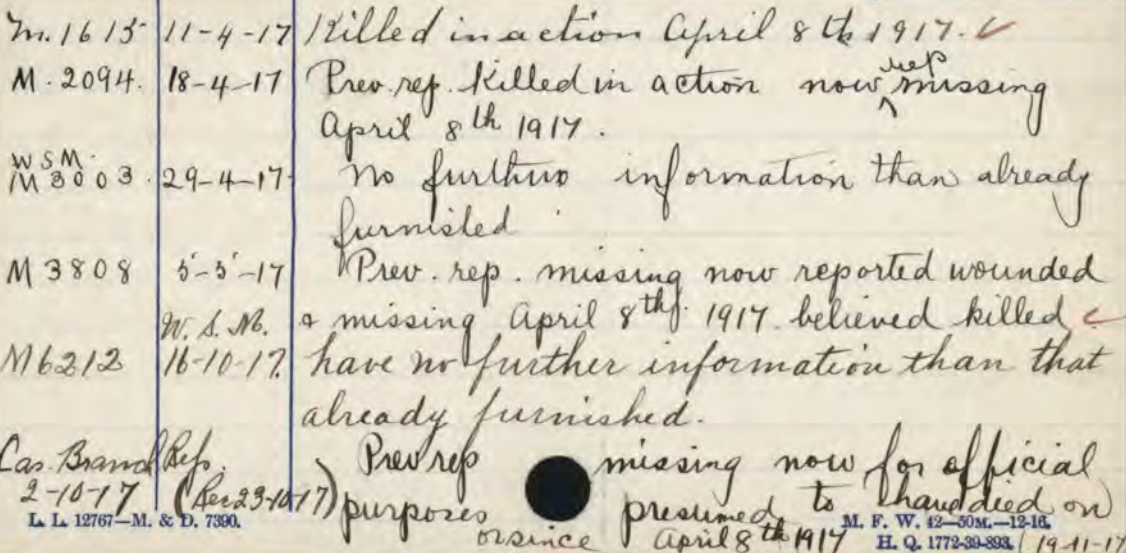 M. 1615 11-4-17 Killed in action April 8th 1917.
M. 2094. 18-4-17 Prev. rep. Killed in action now rep missing
April 8th 1917.
WSM.
M3003. 29-4-17 No further information than already
furnished
M3808 5-5-17 Prev. rep. missing now reported wounded
W. S. M. & missing April 8th. 1917. believed killed
M6212 16-10-17. have no further information than that
already furnished.
Cas. Branch Rep. Prev rep missing now for official
2-10-17 (Rec 23-10-17) purposes presumed to have died on
L. L. 12767—M. & D. 7390. or since April 8th 1917 M. F. W. 42—50M.—12-16.
H. Q. 1772-39-893. 19-11-17